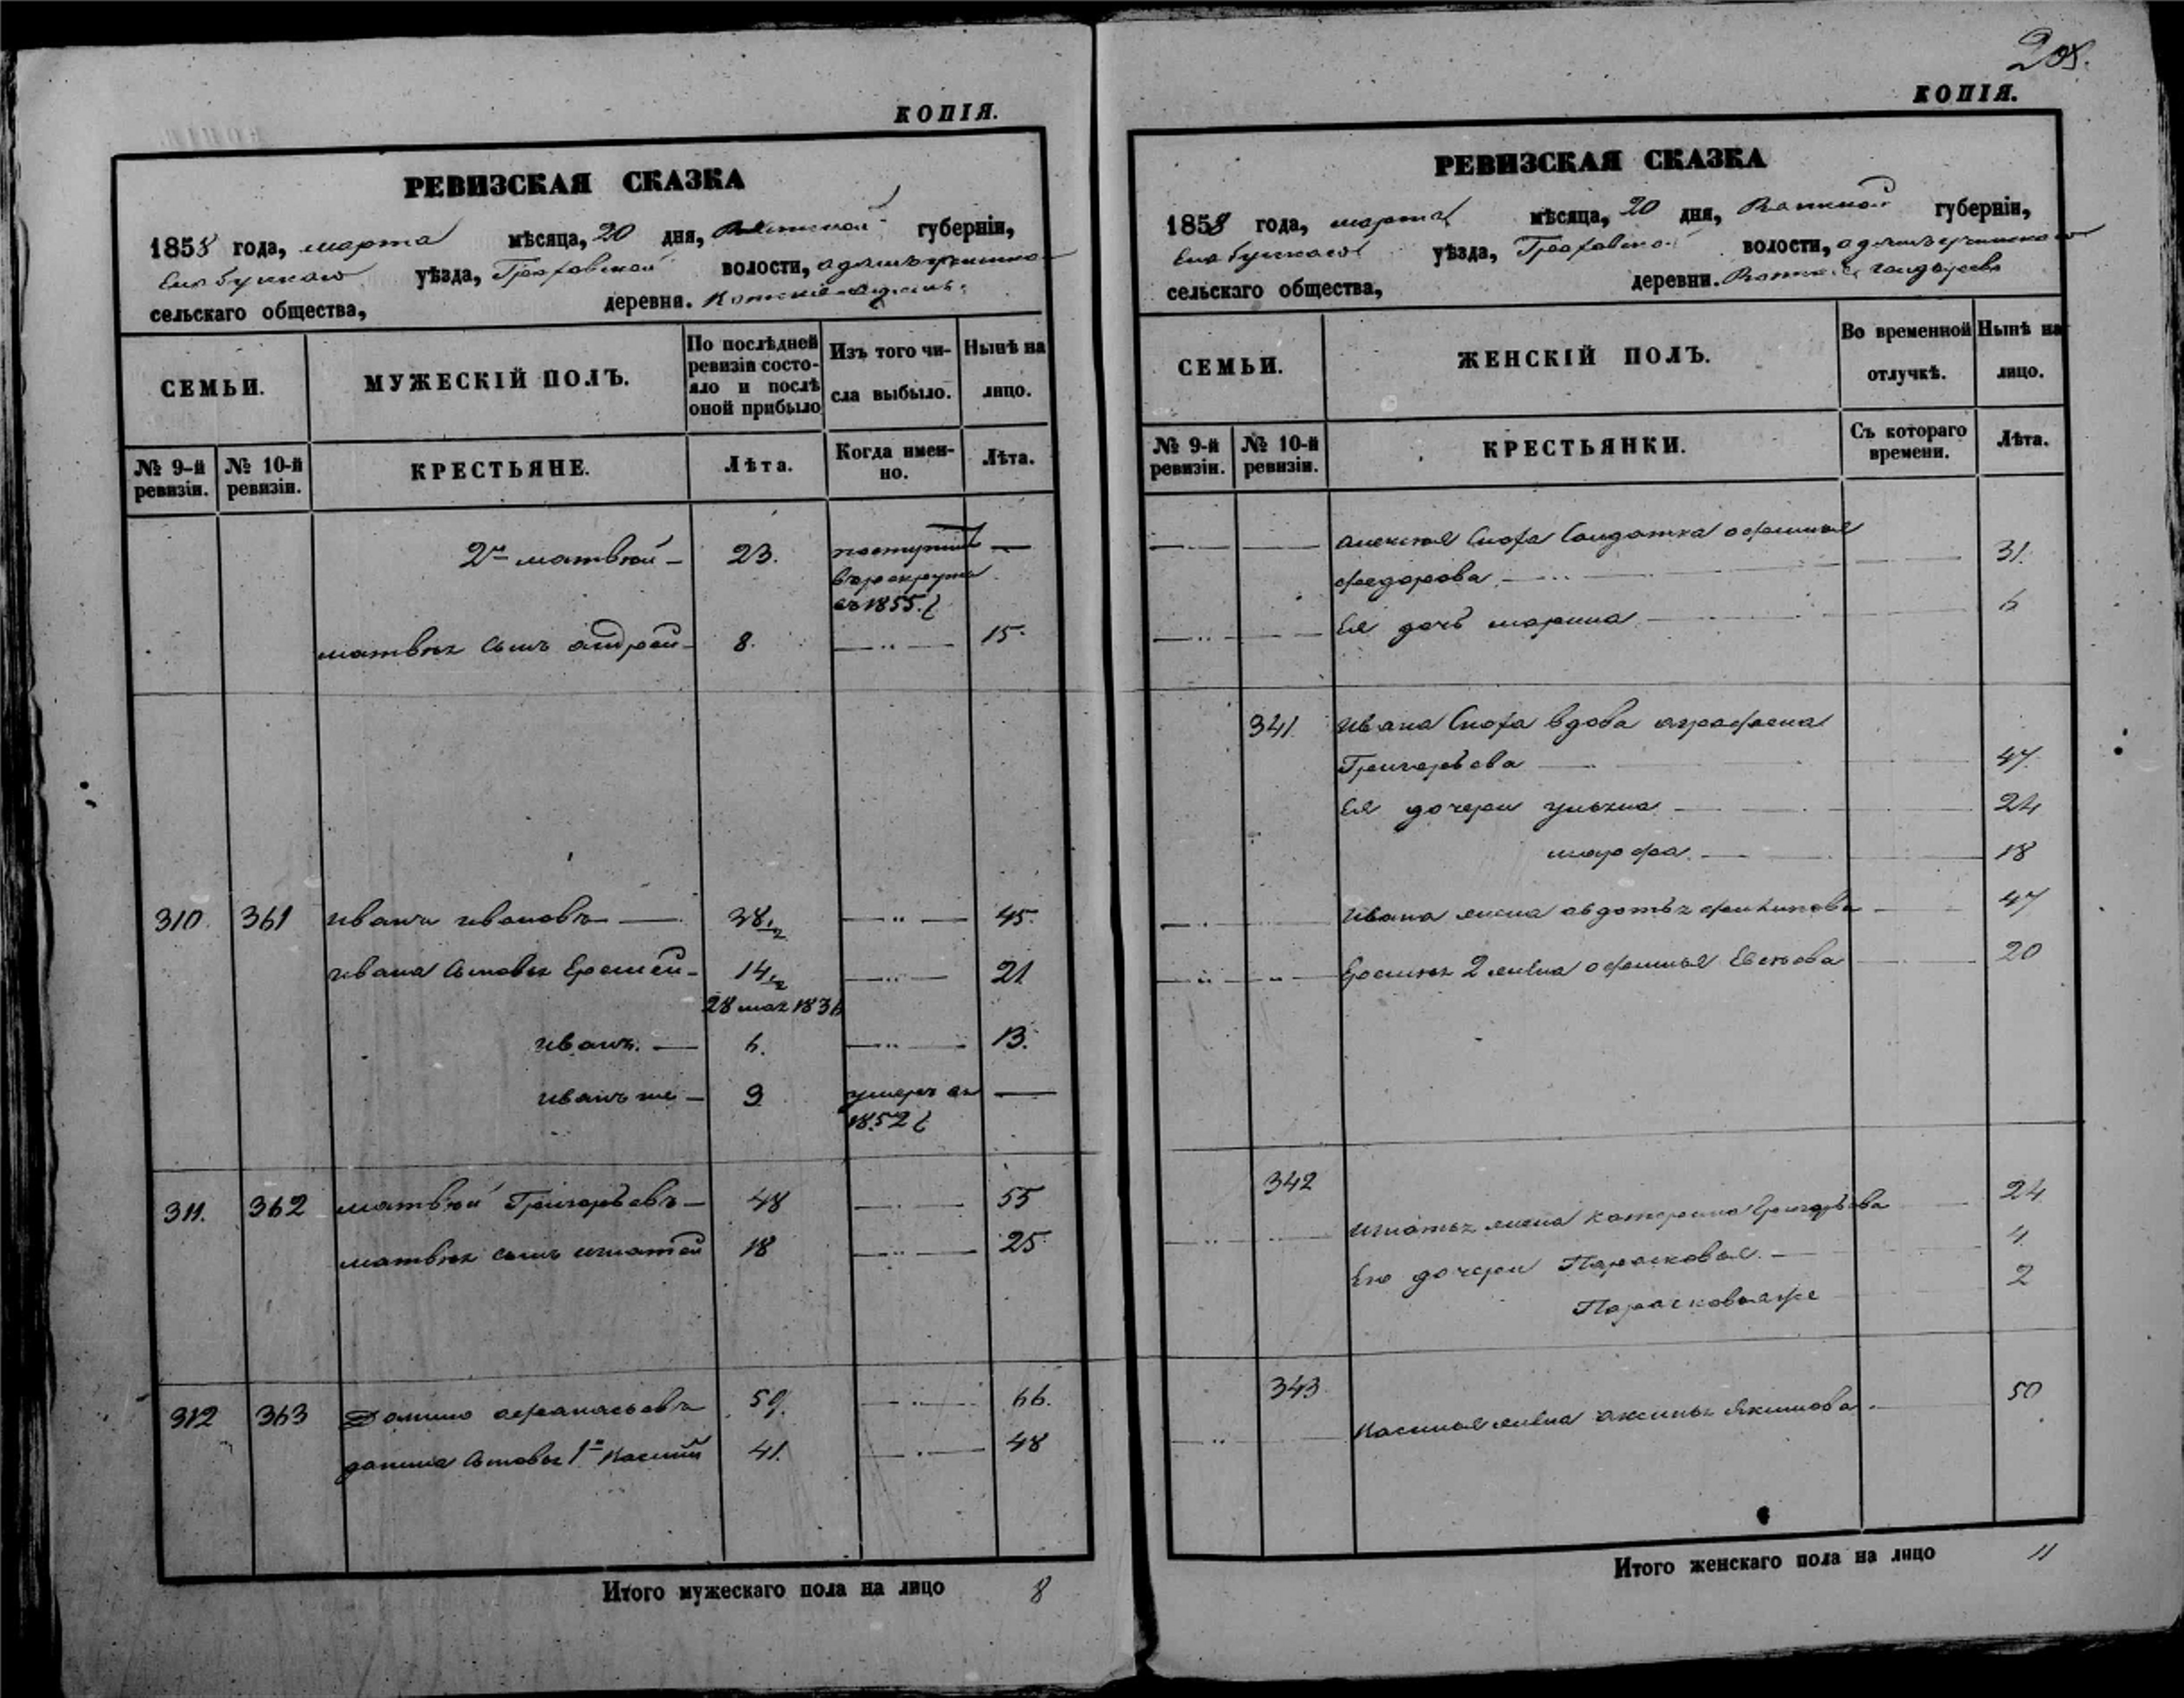 КОПІЯ.
РЕВИЗСКАЯ СКАЗКА
1858 года, марта мѣсяца, 20 дня, Вятской губерніи,
Елабужскаго уѣзда, Граховской волости,
сельскаго общества, деревни.
СЕМЬИ.
МУЖЕСКІЙ ПОЛЪ.
По послѣдней
ревизіи состо-
яло и послѣ
оной прибыло
Изъ того чи-
сла выбыло.
Нынѣ на
лицо.
№ 9-й
ревизіи.
№ 10-й
ревизіи.
КРЕСТЬЯНЕ.
Лѣта.
Когда имен-
но.
Лѣта.
2й матвѣй — 23. поступилъ —
въ рекруты
въ 1855 г
матвѣя сынъ андрей — 8. — 15.
310. 361 иванъ ивановъ — 38 1/2 — 45.
ивана сыновья Еремей — 14 1/2 — 21
28 1836
иванъ. — 6. — 13.
иванъ же — 9 умеръ въ —
1852 г
311. 362 матвѣй Григорьевъ — 48 — 55
матвѣя сынъ игнатей 18 — 25
312 363 Данило афанасьевъ 59. — 66.
данила сыновья 1й Касиян 41. — 48
Итого мужескаго пола на лицо 8
КОПІЯ.
РЕВИЗСКАЯ СКАЗКА
1858 года, марта мѣсяца, 20 дня, Вятской губерніи,
Елабужскаго уѣзда, Граховской волости,
сельскаго общества, деревни.
СЕМЬИ.
ЖЕНСКІЙ ПОЛЪ.
Во временной
отлучкѣ.
Нынѣ на
лицо.
№ 9-й
ревизіи.
№ 10-й
ревизіи.
КРЕСТЬЯНКИ.
Съ котораго
времени.
Лѣта.
Снофа Солдатка офимья
федорова — 31.
Ея дочь марина — 6
341 ивана Снофа вдова аграфена
Григорьева — 47.
Ея дочери ульяна — 24
марфа. — 18
ивана жена авдотья — 47
Еремея 2 жена офимья — 20
342
игнатья жена катерина Григорьева — 24
Его дочери Парасковья. — 4
Парасковья же 2
343
Касиная жена аксинья Якимова. — 50
Итого женскаго пола на лицо 11